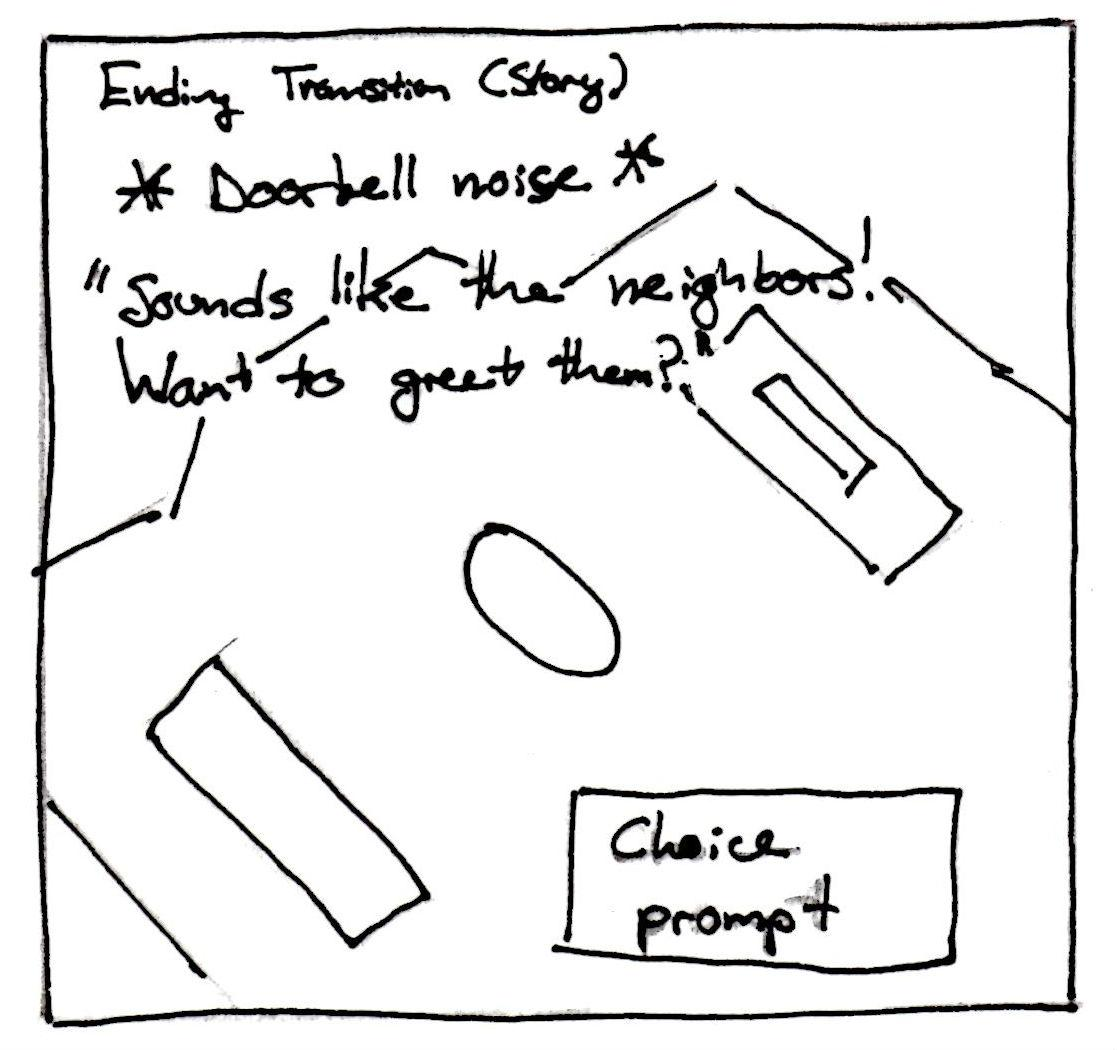 Ending Transition (Story)
* Doorbell noise *
"Sounds like the neighbors!
Want to greet them?"
Choice
prompt